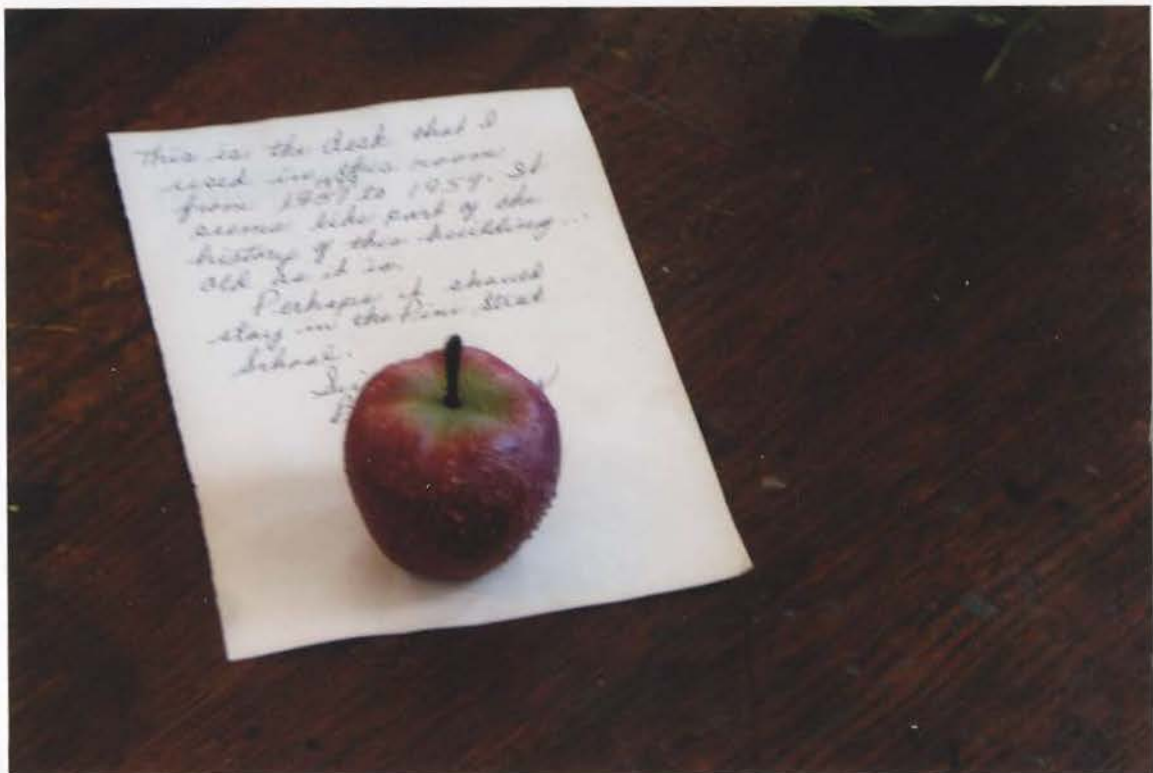 This is the desk that I
used in this room
from to 1959. It
seems like part of the
history of this building...
old as it is.
Perhaps it should
stay in the Pine Street
School.